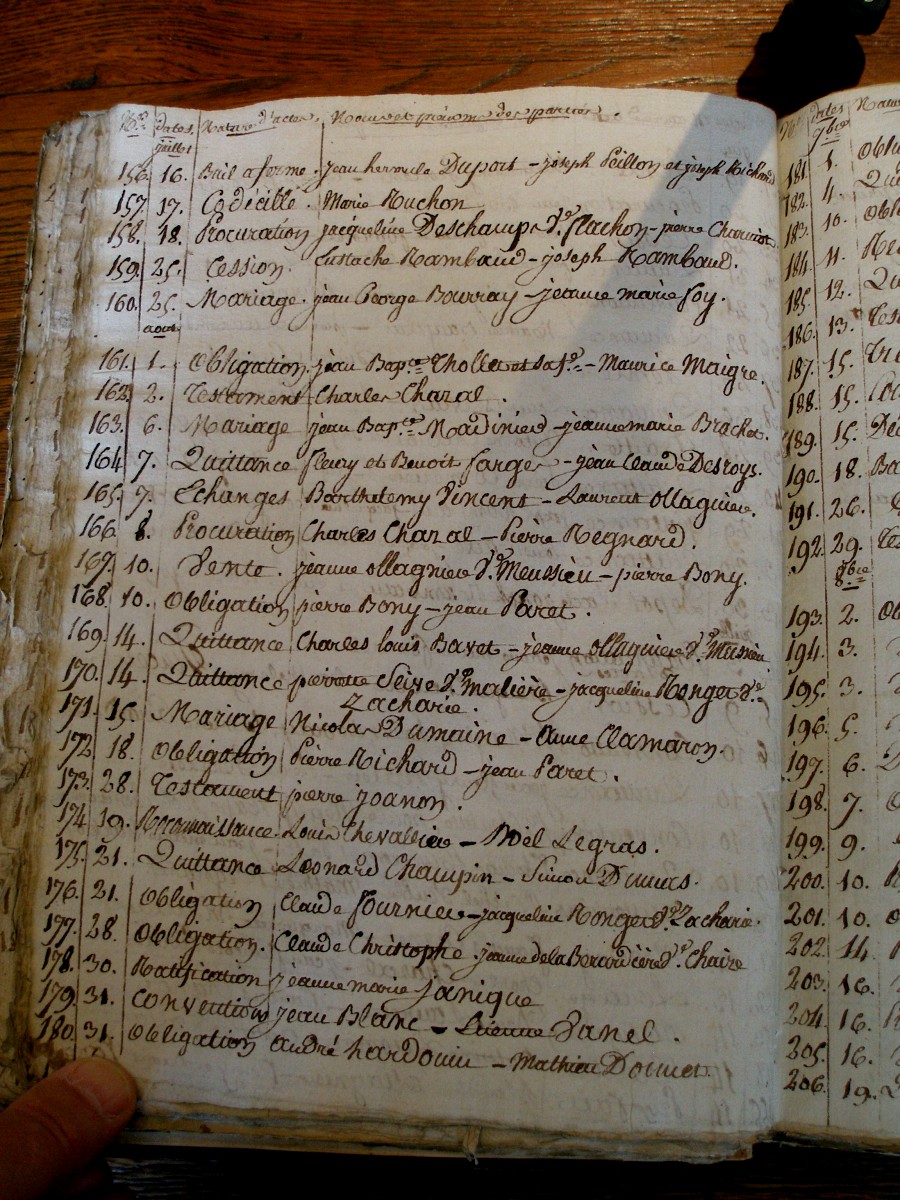 Nos dates Nature d'actes. Noms et prénoms des parties.
juillet
156. 16. Bail a ferme. jean hercule Duport - joseph Peillon et joseph Richard
157 17. Codécille. Marie Ruchon
158. 18. Procuration jacqueline Deschamps Ve. flachon - pierre
159. 25. Cession. Eustache Rambaud - joseph Rambaud.
160. 25. Mariage. jean George Bourray - jeanne marie foy.
aout
161. 1. Obligation. jean Bapte. Thollet et sa fe. - Maurice Maigre.
162. 2. Testament Charles Chazal.
163. 6. Mariage jean Bapte. Madinier - jeanne marie Brachet.
164 7. Quittance fleury et Benoit farges - jean Claude Desroys.
165. 7. Echanges Barthelemy Vincent - Laurent ollagnier.
166 8. Procuration Charles Chazal - Pierre Regnard.
167. 10. Vente. jeanne ollagnier Ve. Meussieu - pierre Bony.
168. 10. Obligation pierre Bony - jean Paret.
169. 14. Quittance Charles Louis Bavet - jeanne ollagnier Ve. Mussieu
170. 14. Quittance pierrette Seive Ve. malière - jacqueline Ronget Ve.
Zacharie.
171. 15. Mariage Nicolas Dumaine - Anne Clamaron.
172 18. Obligation Pierre Richard - jean Paret.
173. 28. Testament pierre joanon.
174 19. Reconnaissance. Louis Chevallier - Noël Legras.
175. 21. Quittance Leonard Champin - Simon Dumas.
176. 21. Obligation Claude fournier - jacqueline Ronget Ve. Zacharie.
177. 28. Obligation. Claude Christophe. jeanne de la Berardière Ve. Chaire
178. 30. Ratification jeanne marie janique
179. 31. convention jean Blanc - Etienne Janel.
180. 31. Obligation andré hardouin - Mathieu
Nos dates Natu
7bre
181. 1. Obli
182. 4. Qui
183. 10. Obli
184. 11.
185. 12. Qu
186. 13. Tes
187. 15.
188. 15.
189. 15. Dé
190. 18. Ba
191. 26.
192. 29.
8bre
193. 2. Ob
194. 3.
195. 3.
196. 5.
197. 6.
198. 7.
199. 9.
200. 10.
201. 10.
202. 14.
203. 16.
204. 16.
205. 16.
206. 19.